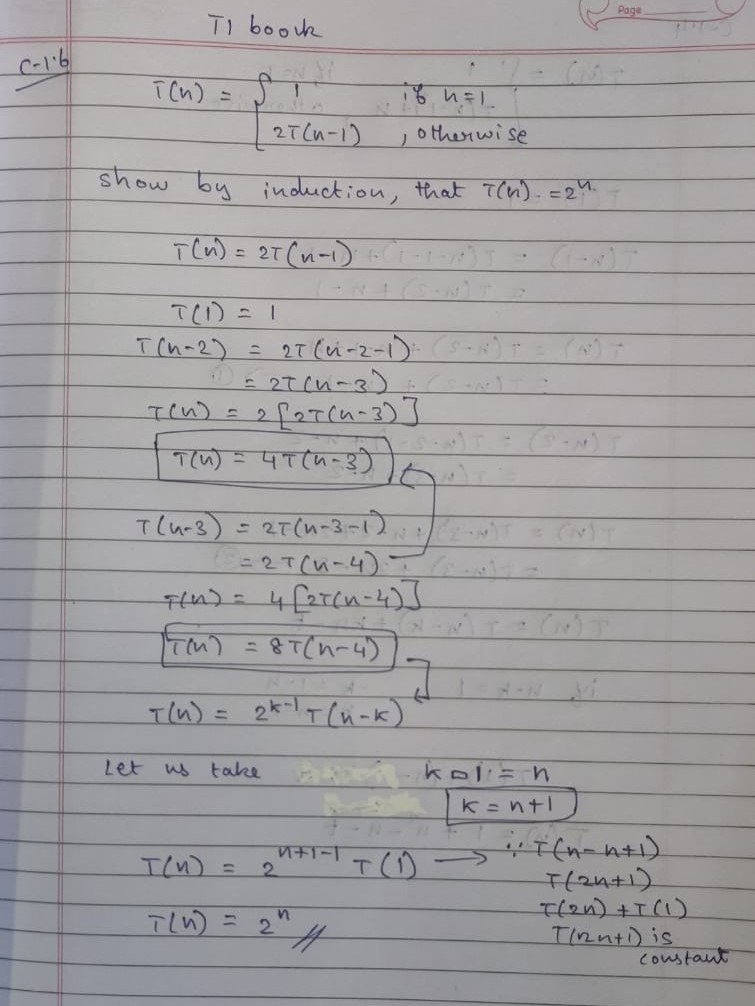 Page
T1 book
C-1.6
T(n) = { 1 if n=1
2T(n-1) , otherwise
show by induction, that T(n) = 2ⁿ.
T(n) = 2T(n-1)
T(1) = 1
T(n-2) = 2T(n-2-1)
= 2T(n-3)
T(n) = 2[2T(n-3)]
T(n) = 4T(n-3)
T(n-3) = 2T(n-3-1)
= 2T(n-4)
T(n) = 4[2T(n-4)]
T(n) = 8T(n-4)
T(n) = 2ᵏ⁻¹ T(n-k)
Let us take k-1 = n
k = n+1
T(n) = 2ⁿ⁺¹⁻¹ T(1) → ∵ T(n-n+1)
T(2n+1)
T(2n) + T(1)
T(n) = 2ⁿ //
T(2n+1) is
constant